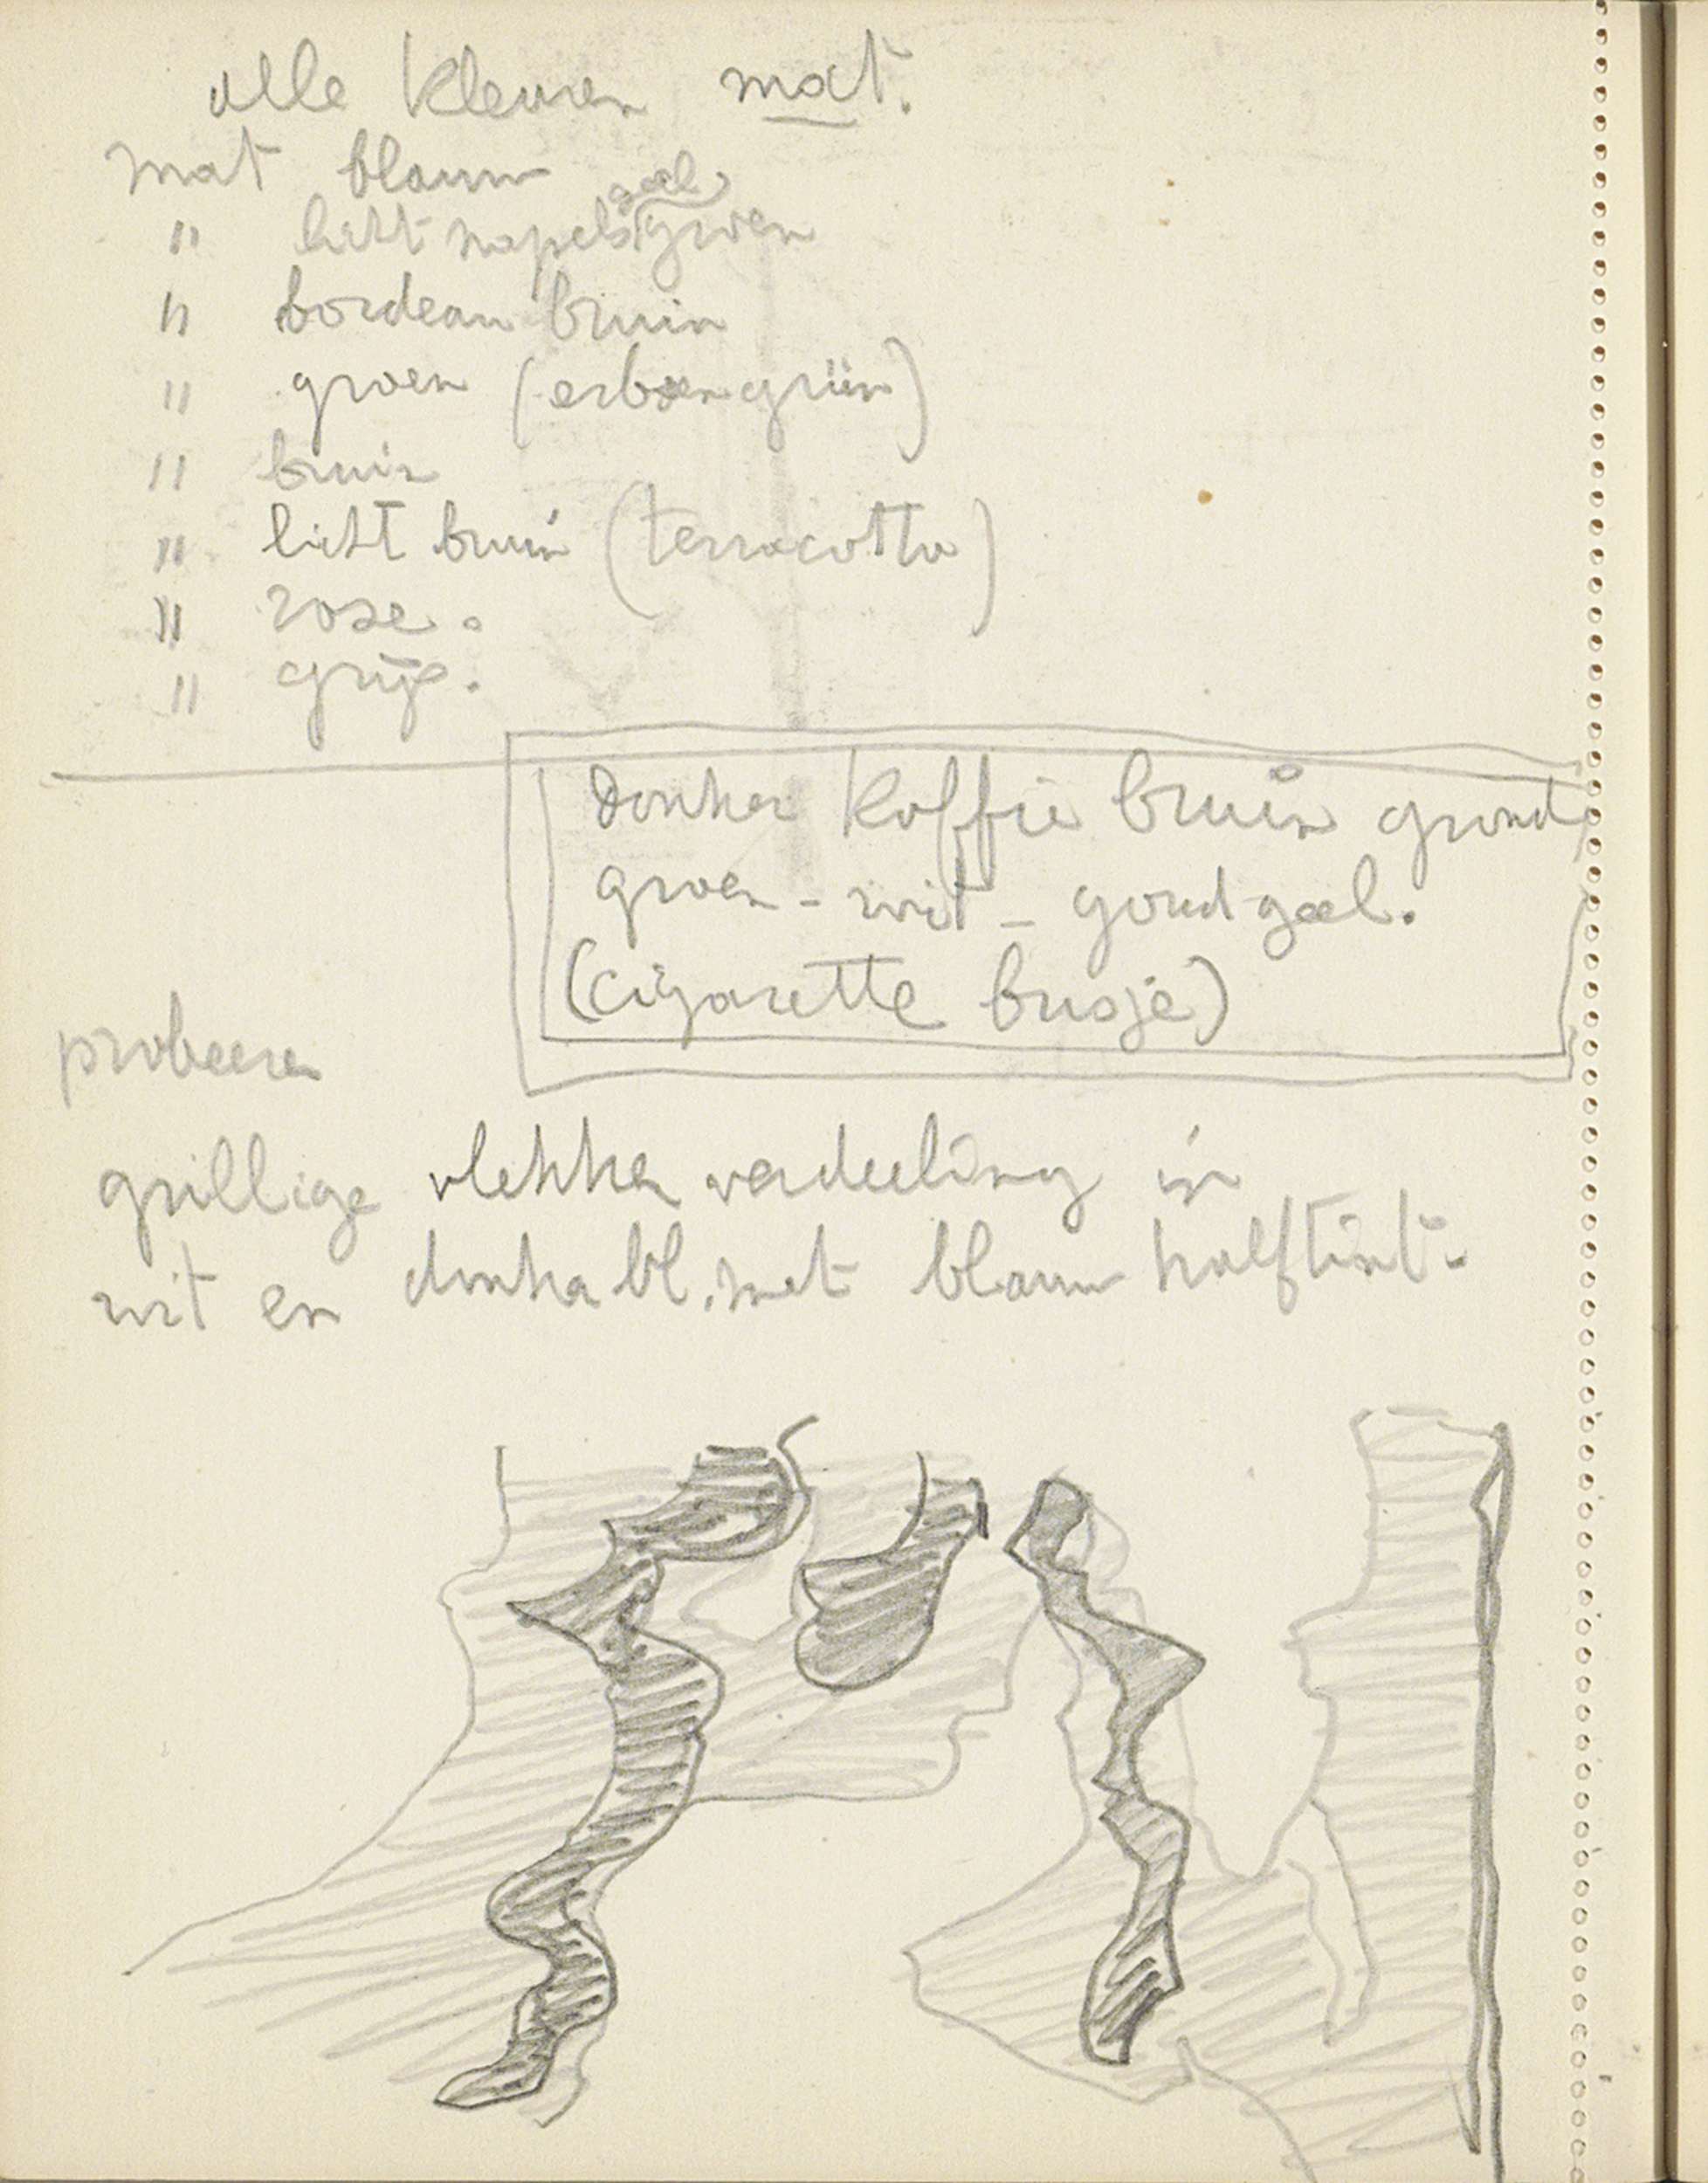 alle kleuren mat.
mat blauw
" licht napels geel groen
" bordeau bruin
" groen (erbsengrün)
" bruin
" licht bruin (terracotta)
" rose.
" grijs.
Donker koffie bruin grond
groen - wit - goudgeel.
(cigarette busje)
probeeren
grillige vlekken verdeeling in
wit en donker bl. met blauw halftint.